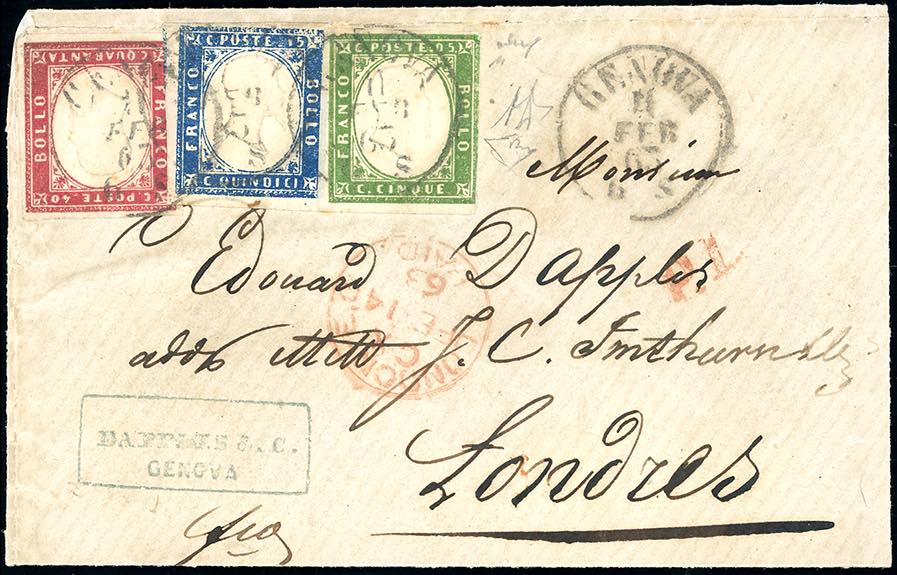 C. QUARANTA
FRANCO
BOLLO
C. POSTE 40
C. POSTE 15
FRANCO
BOLLO
C. QUINDICI
C. POSTE 05
FRANCO
BOLLO
C. CINQUE
GENOVA
11
FEB
63
6 S
Monsieur
Edouard Dapples
P.D.
J. C. Imthurn
LONDON
PAID
14
63
DAPPLES & C.
GENOVA
Londres
fco